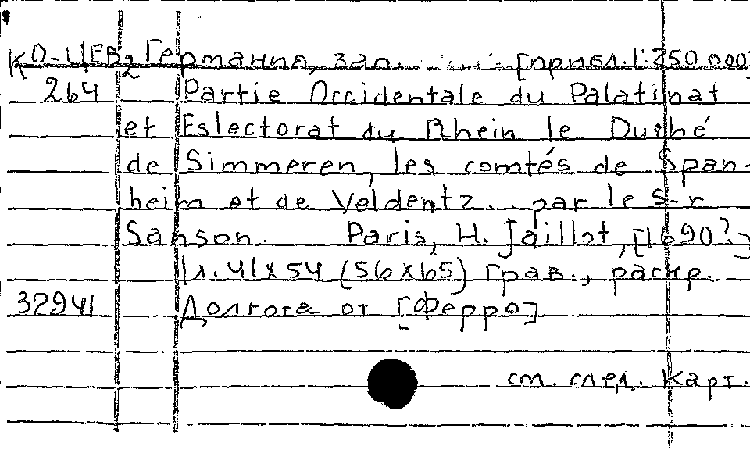 КО-ЦЕВ2 Германия, зап. [прибл. 1:250 000]
264 Partie Occidentale du Palatinat
et Eslectorat du Rhein le Duché
de Simmeren, les comtés de Span-
heim et de Veldentz.. par le S-r
Sanson. Paris, H. Jaillot, [1690?]
1л. 41x54 (56x65) грав., раскр.
32941 Долгота от [Ферро]
см. след. карт.